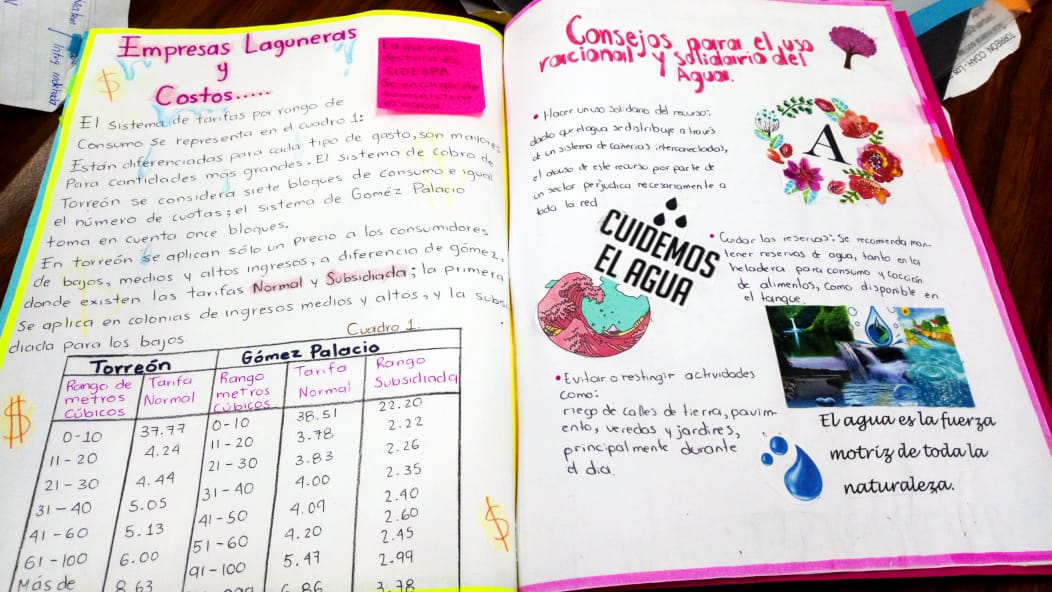 Empresas Laguneras
y
Costos.....
La que más
destaca es
SIDEAPA
Se encarga de
suministrar
el agua
El Sistema de tarifas por rango de
Consumo se representa en el cuadro 1:
Están diferenciadas para cada tipo de gasto, son mayores
Para cantidades más grandes. El Sistema de Cobro de
Torreón se considera siete bloques de consumo e igual
el número de cuotas; el sistema de Goméz Palacio
toma en cuenta once bloques.
En torreón se aplican sólo un precio a los consumidores
de bajos, medios y altos ingresos, a diferencia de gómez,
donde existen las tarifas Normal y Subsidiada; la primera
Se aplica en colonias de ingresos medios y altos, y la subsi
diada para los bajos.
Cuadro 1.
Torreón Gómez Palacio
Rango de metros Cúbicos Tarifa Normal Rango metros Cúbicos Tarifa Normal Rango Subsidiada
0-10 37.77 0-10 38.51 22.20
11-20 4.24 11-20 3.78 2.22
21-30 4.44 21-30 3.83 2.26
31-40 5.05 31-40 4.00 2.35
41-60 5.13 41-50 4.09 2.40
61-100 6.00 51-60 4.20 2.60
Más de 8.63 91-100 5.47 2.45
6.86 2.99
3.78
Consejos para el uso
racional y solidario del
Agua.
• Hacer un uso solidario del recurso:
dado que el agua se distribuye a través
de un sistema de cañerías interconectadas,
el abuso de este recurso por parte de
un sector perjudica necesariamente a
toda la red
A
CUIDEMOS
EL AGUA
• Cuidar las reservas: Se recomienda man-
tener reservas de agua, tanto en la
heladera para consumo y cocción
de alimentos, como disponible en
el tanque.
• Evitar o restingir actividades
como:
riego de calles de tierra, pavim-
ento, veredas y jardires,
principalmente durante
el dia.
El agua es la fuerza
motriz de toda la
naturaleza.